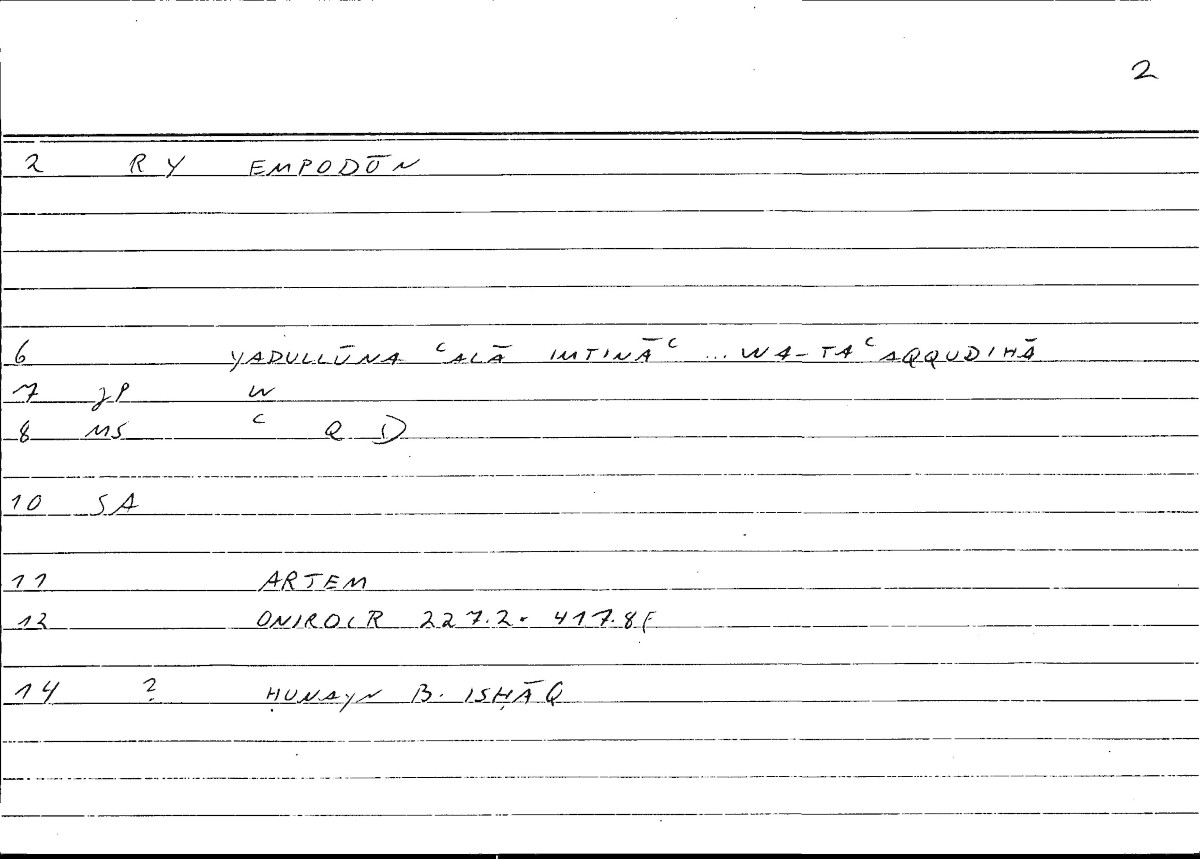 2
2 R Y EMPODŌN
6 YADULLŪNA ʿALĀ IMTINĀʿ ... WA-TAʿAQQUDIHĀ
7 JP W
8 MS ʿ Q D
10 SA
11 ARTEM
12 ONIROCR 227.2. 417.8F
14 ? ḤUNAYN B. ISḤĀQ